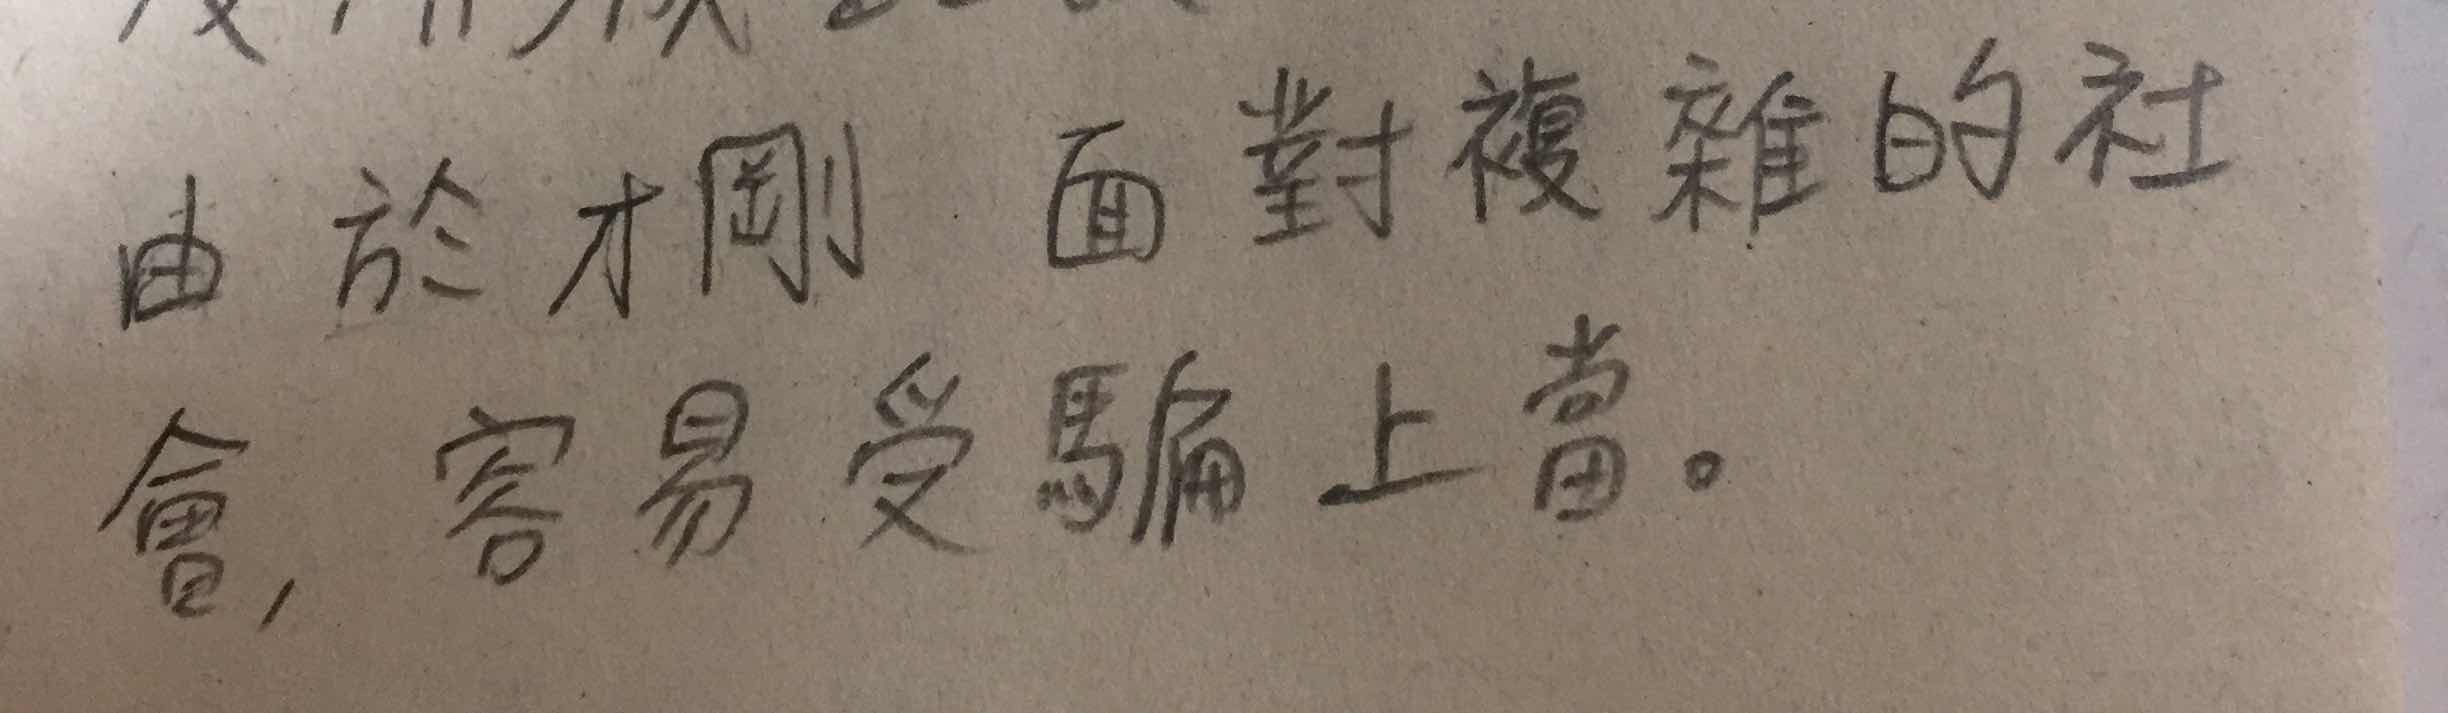 由於才剛 面對複雜的社
會,容易受騙上當。